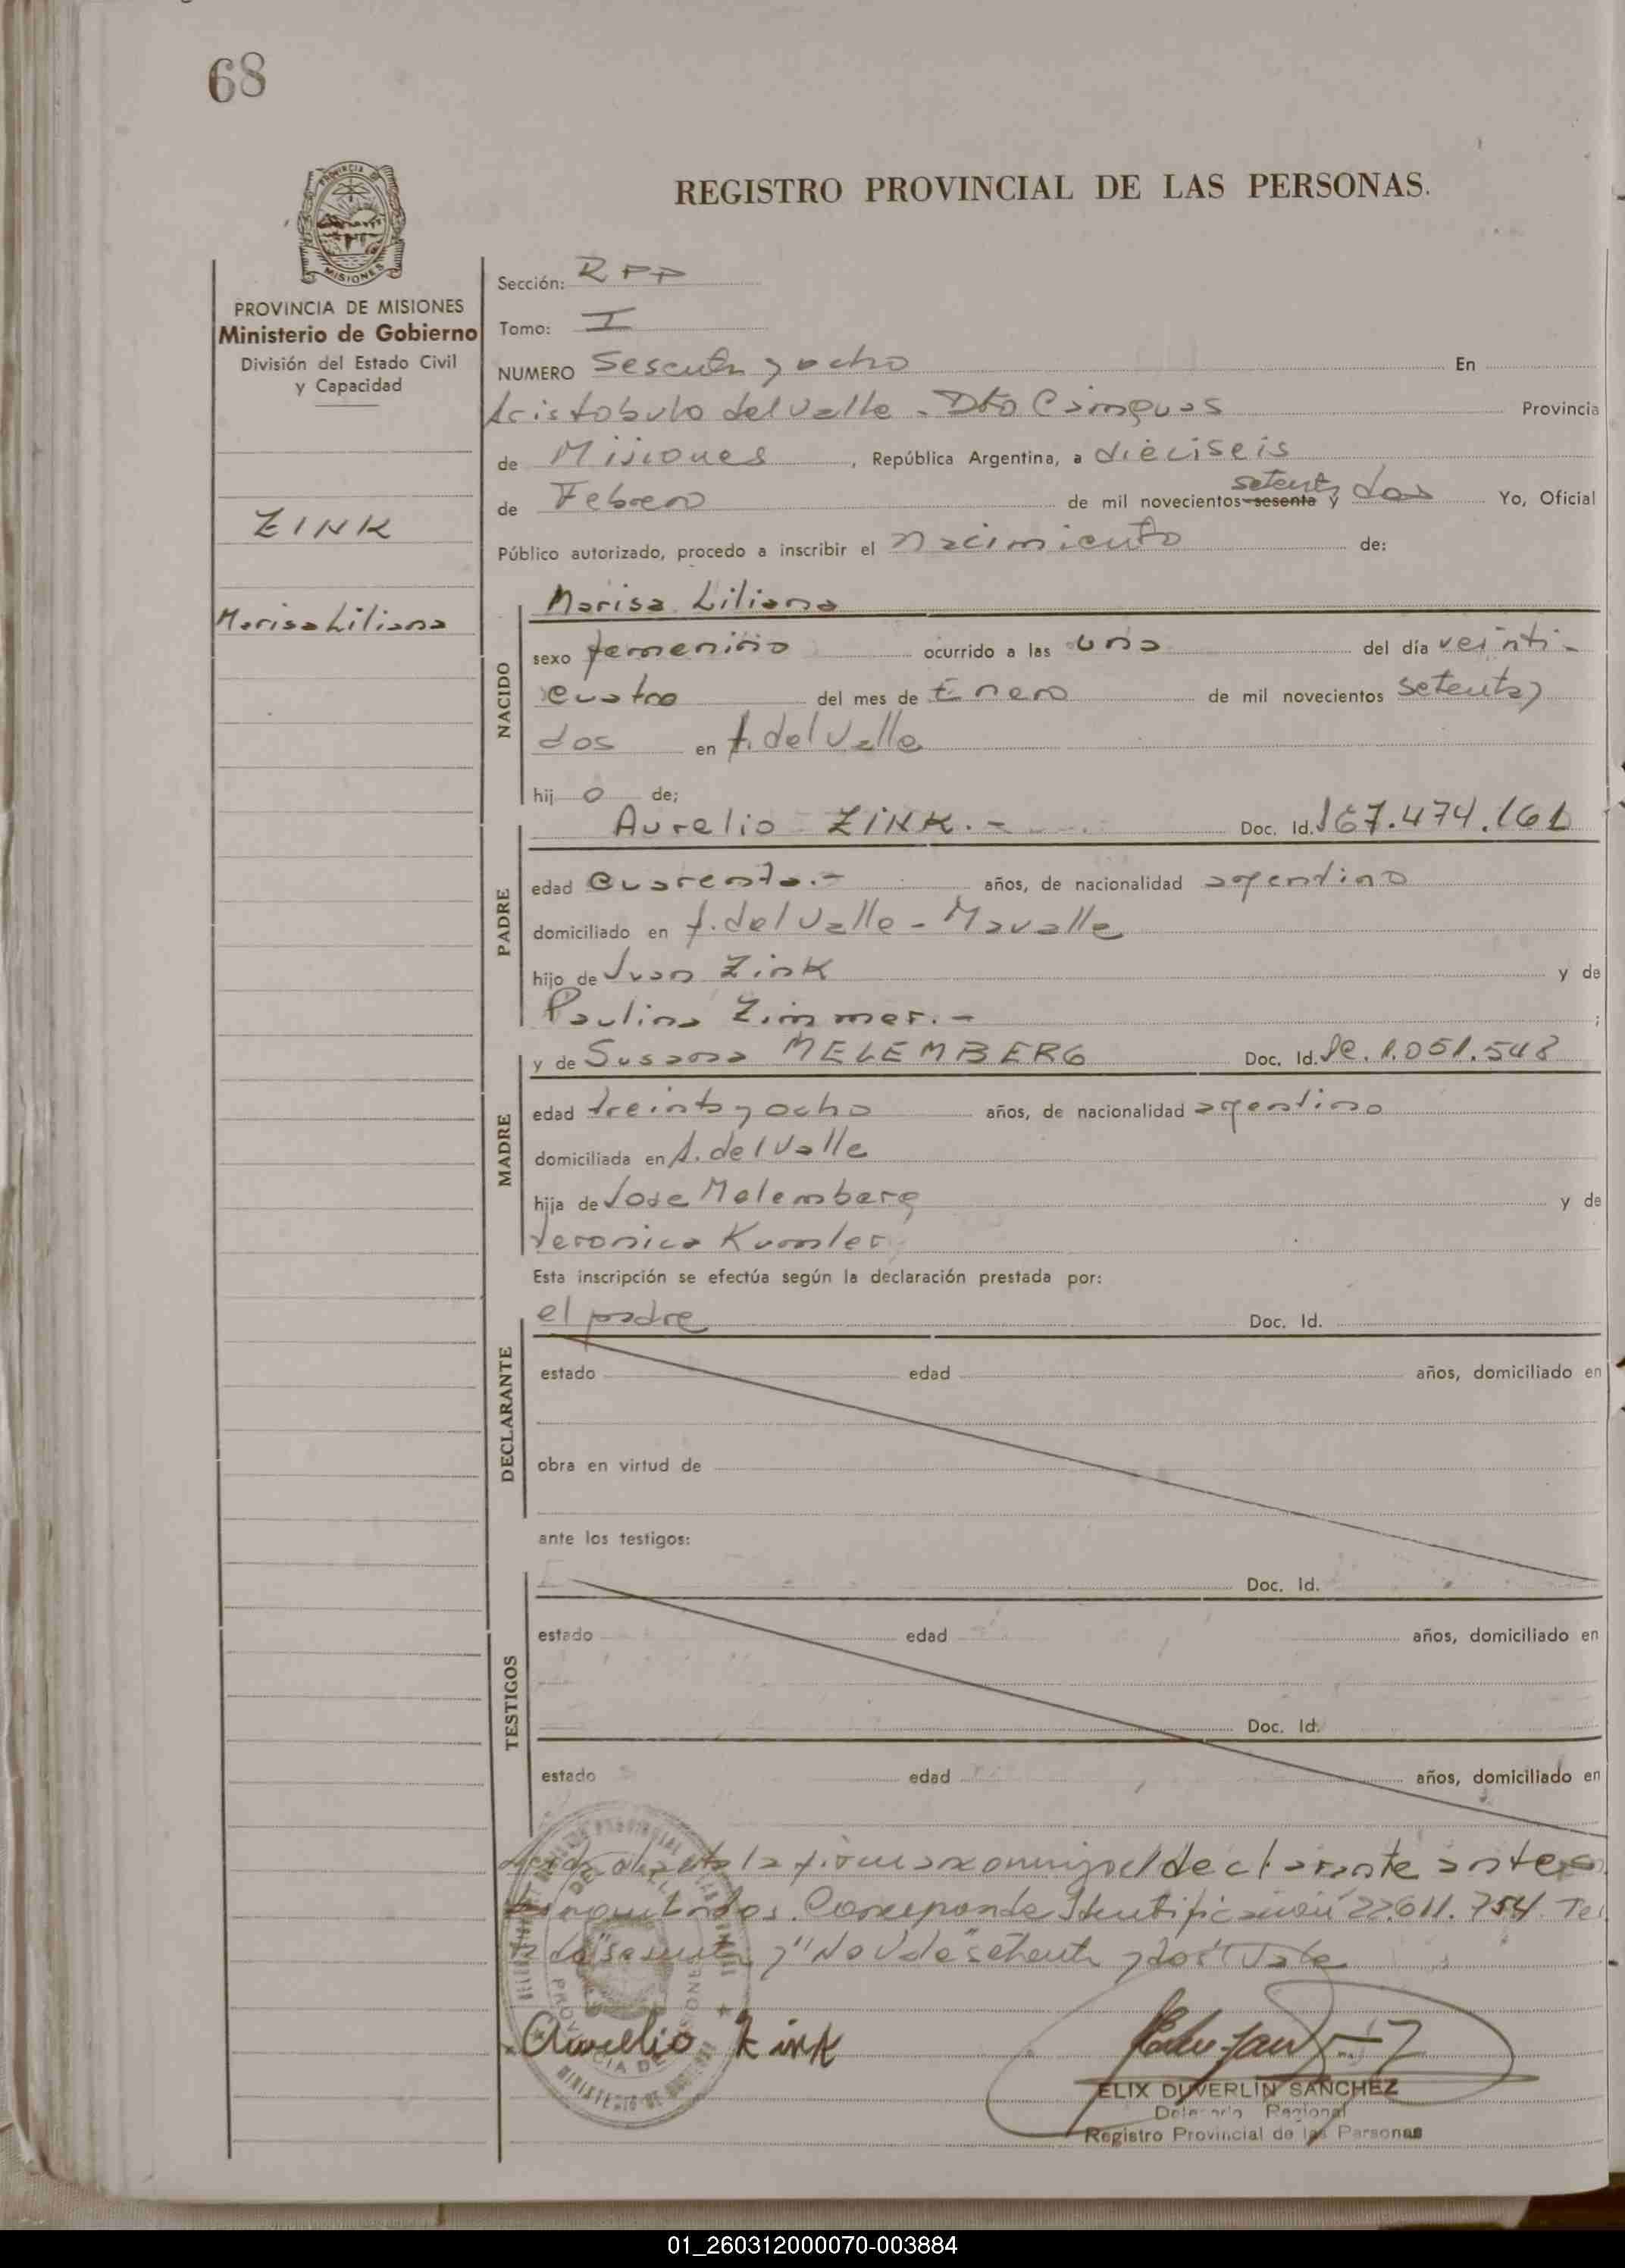 68
PROVINCIA DE
MISIONES
REGISTRO PROVINCIAL DE LAS PERSONAS.
PROVINCIA DE MISIONES
Ministerio de Gobierno
División del Estado Civil
y Capacidad
ZINK
Marisa Liliana
Sección: RPP
Tomo: I
NUMERO Sesenta y ocho En
Aristobulo del Valle - Dto Cainguas Provincia
de Misiones, República Argentina, a dieciseis
setenta
de Febrero de mil novecientos sesenta y dos Yo, Oficial
Público autorizado, procedo a inscribir el nacimiento de:
Marisa Liliana
NACIDO
sexo femenino ocurrido a las una del día veinti-
cuatro del mes de Enero de mil novecientos setenta y
dos en A. del Valle
hij o de;
PADRE
Aurelio ZINK.- Doc. Id. 7.474.161
edad cuarenta.- años, de nacionalidad argentino
domiciliado en A. del Valle - Mavalle
hijo de Juan Zink y de
Paulina Zimmer.- ;
MADRE
y de Susana MELEMBERG Doc. Id. 1.051.548
edad treinta y ocho años, de nacionalidad argentina
domiciliada en A. del Valle
hija de Jose Melemberg y de
Veronica Kumler
Esta inscripción se efectúa según la declaración prestada por:
DECLARANTE
el padre Doc. Id.
estado edad años, domiciliado en
obra en virtud de
ante los testigos:
TESTIGOS
Doc. Id.
estado edad años, domiciliado en
Doc. Id.
estado edad años, domiciliado en
la firma conmigo el declarante
Corresponde Identificación 22.611.754
"sesenta y" "setenta y dos" Vale
Aurelio Zink
ELIX DUVERLIN SANCHEZ
Delegado Regional
Registro Provincial de las Personas
01_260312000070-003884